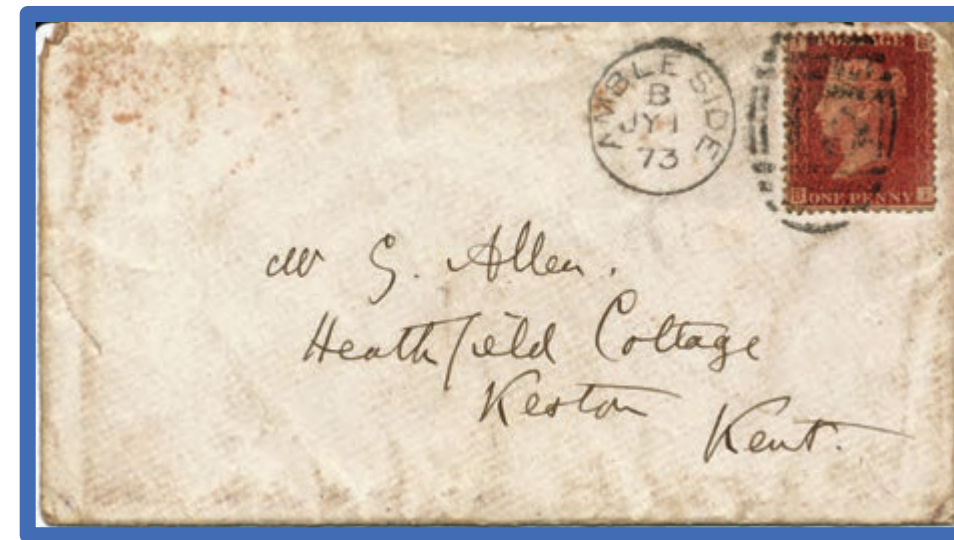 AMBLESIDE
B
JY 1
73
ONE PENNY
Mr G. Allen.
Heathfield Cottage
Keston
Kent.